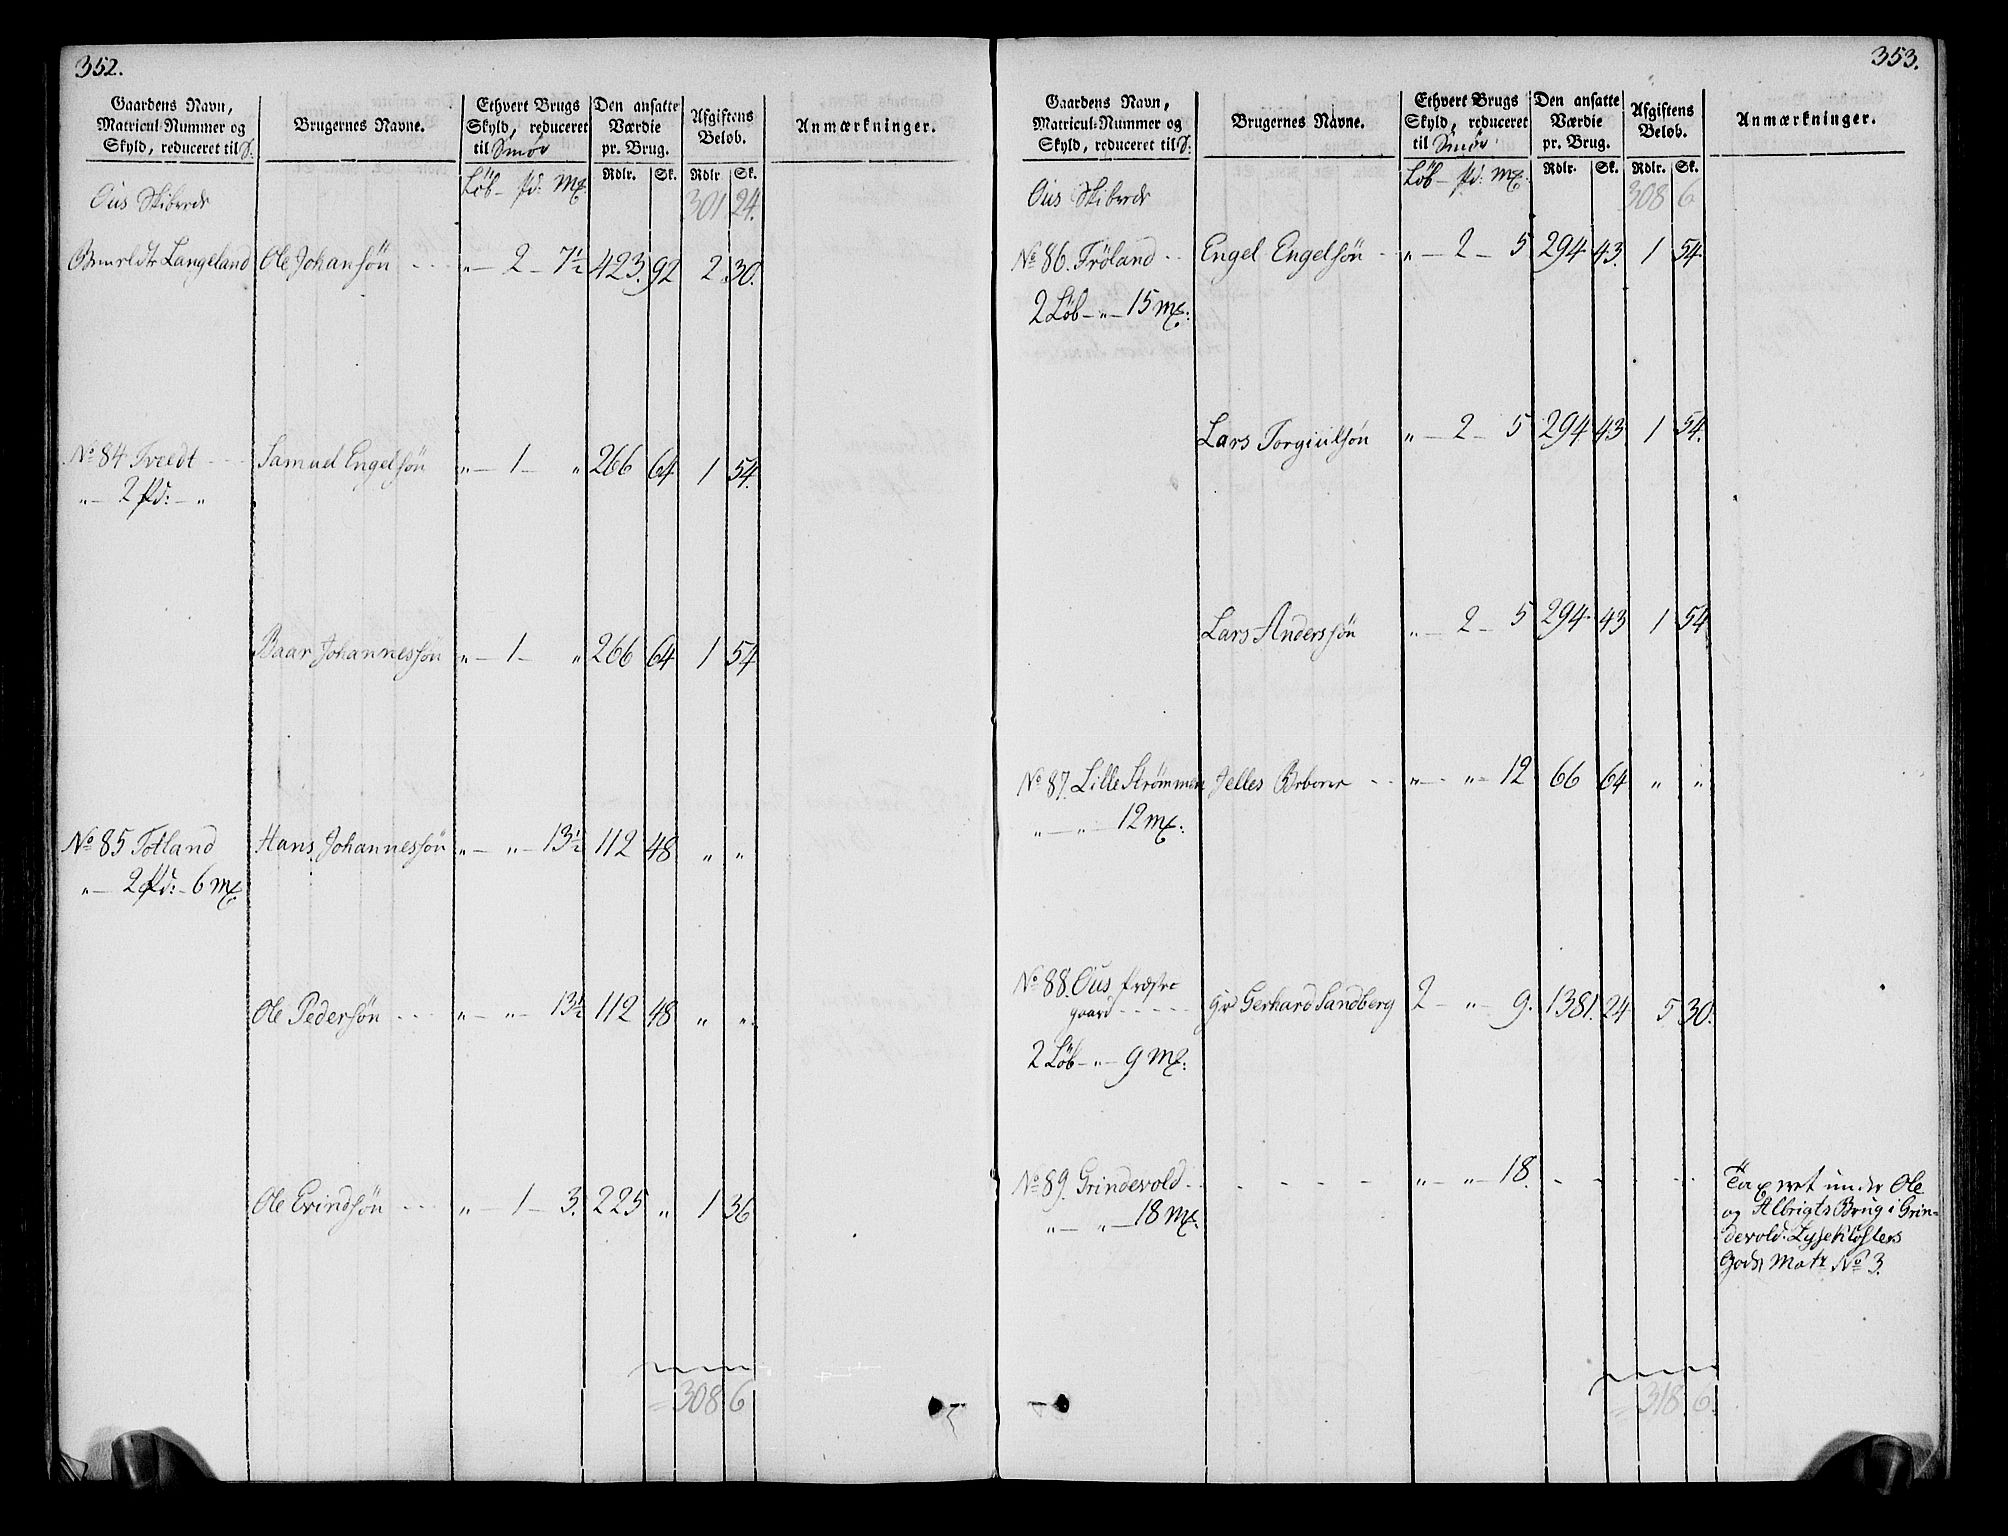 352.
Gaardens Navn, Matricul-Nummer og Skyld, reduceret til S: | Brugernes Navne. | Ethvert Brugs Skyld, reduceret til Smör | Den ansatte Værdie pr. Brug. | Afgiftens Beløb. | Anmærkninger.
Löb – pd: Mk: | Rdlr. | Sk. | Rdlr | Sk.
Ous Skibrede | 301 | 24.
Langeland | Ole Johansön | „ – 2 – 7½ | 423. | 92 | 2. | 30.
No 84 Tveldt | Samuel Engelsön | „ – 1 – „ | 266 | 64 | 1 | 54.
„ – 2 pd: – „
Baar Johannessön | „ – 1 – „ | 266 | 64 | 1 | 54
No 85 Totland | Hans Johannessön | „ – „ – 13½ | 112 | 48 | „ | „
„ – 2 pd: – 6 Mk
Ole Pedersön | „ – „ – 13½ | 112 | 48 | „ | „
Ole Evindsön | „ – 1 – 3. | 225 | „ | 1 | 36
= 308. 6
353.
Gaardens Navn, Matricul-Nummer og Skyld, reduceret til S: | Brugernes Navne. | Ethvert Brugs Skyld, reduceret til Smör | Den ansatte Værdie pr. Brug. | Afgiftens Beløb. | Anmærkninger.
Löb – pd: Mk: | Rdlr. | Sk. | Rdlr. | Sk.
Ous Skibrede | 308 | 6
No 86. Fröland | Engel Engelsön | „ – 2 – 5 | 294 | 43. | 1 | 54.
2 Löb – „ – 15 Mk:
Lars Torgiulsön | „ – 2 – 5 | 294 | 43 | 1 | 54.
Lars Anderssön | „ – 2 – 5 | 294 | 43 | 1 | 54
No 87. Lille Strømmen | Jelles | „ – „ – 12 | 66 | 64 | „ | „
„ – „ – 12 Mk:
No 88. Ous Præste
gaard | Hr Gerhard Sandberg | 2 – „ – 9. | 1381. | 24 | 5 | 30.
2 Löb – „ – 9 Mk:
No 89. Grindevold | „ – „ – 18. | Taxeret under Ole
„ – „ – 18 Mk: | og Albrigts Brug i Grin-
devold. Lyseklosters
Gods, Matr No 3.
= 318. 6.